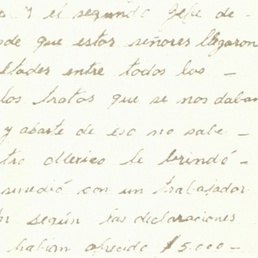 y el segundo Jefe de -
de que estos señores llegaron
ltades entre todos los -
los tratos que se nos daban
y aparte de eso no sabe -
tro Mexico le brindó -
sucedió con un trabajador
según las declaraciones
habian ofrecido $5.000 -